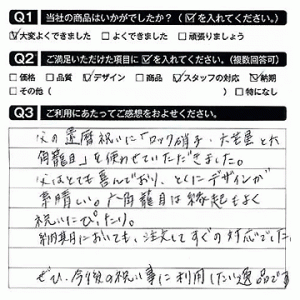 Q1 当社の商品はいかがでしたか？（☑を入れてください。）
☑大変よくできました □よくできました □頑張りましょう
Q2 ご満足いただけた項目に☑を入れてください。（複数回答可）
□価格 □品質 ☑デザイン □商品 ☑スタッフの対応 ☑納期
□その他（ ） □特になし
Q3 ご利用にあたってご感想をおよせください。
父の還暦祝いに「ロック硝子
角籠目」を使わせていただきました。
父はとても喜んでおり、とくにデザインが
素晴しい。六角籠目は縁起もよく
祝いにぴったり。
納期においても、注文してすぐの対応でした
ぜひ、今後の祝い事に利用したい逸品です